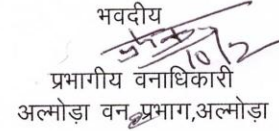 भवदीय
10/2
प्रभागीय वनाधिकारी
अल्मोड़ा वन प्रभाग,अल्मोड़ा